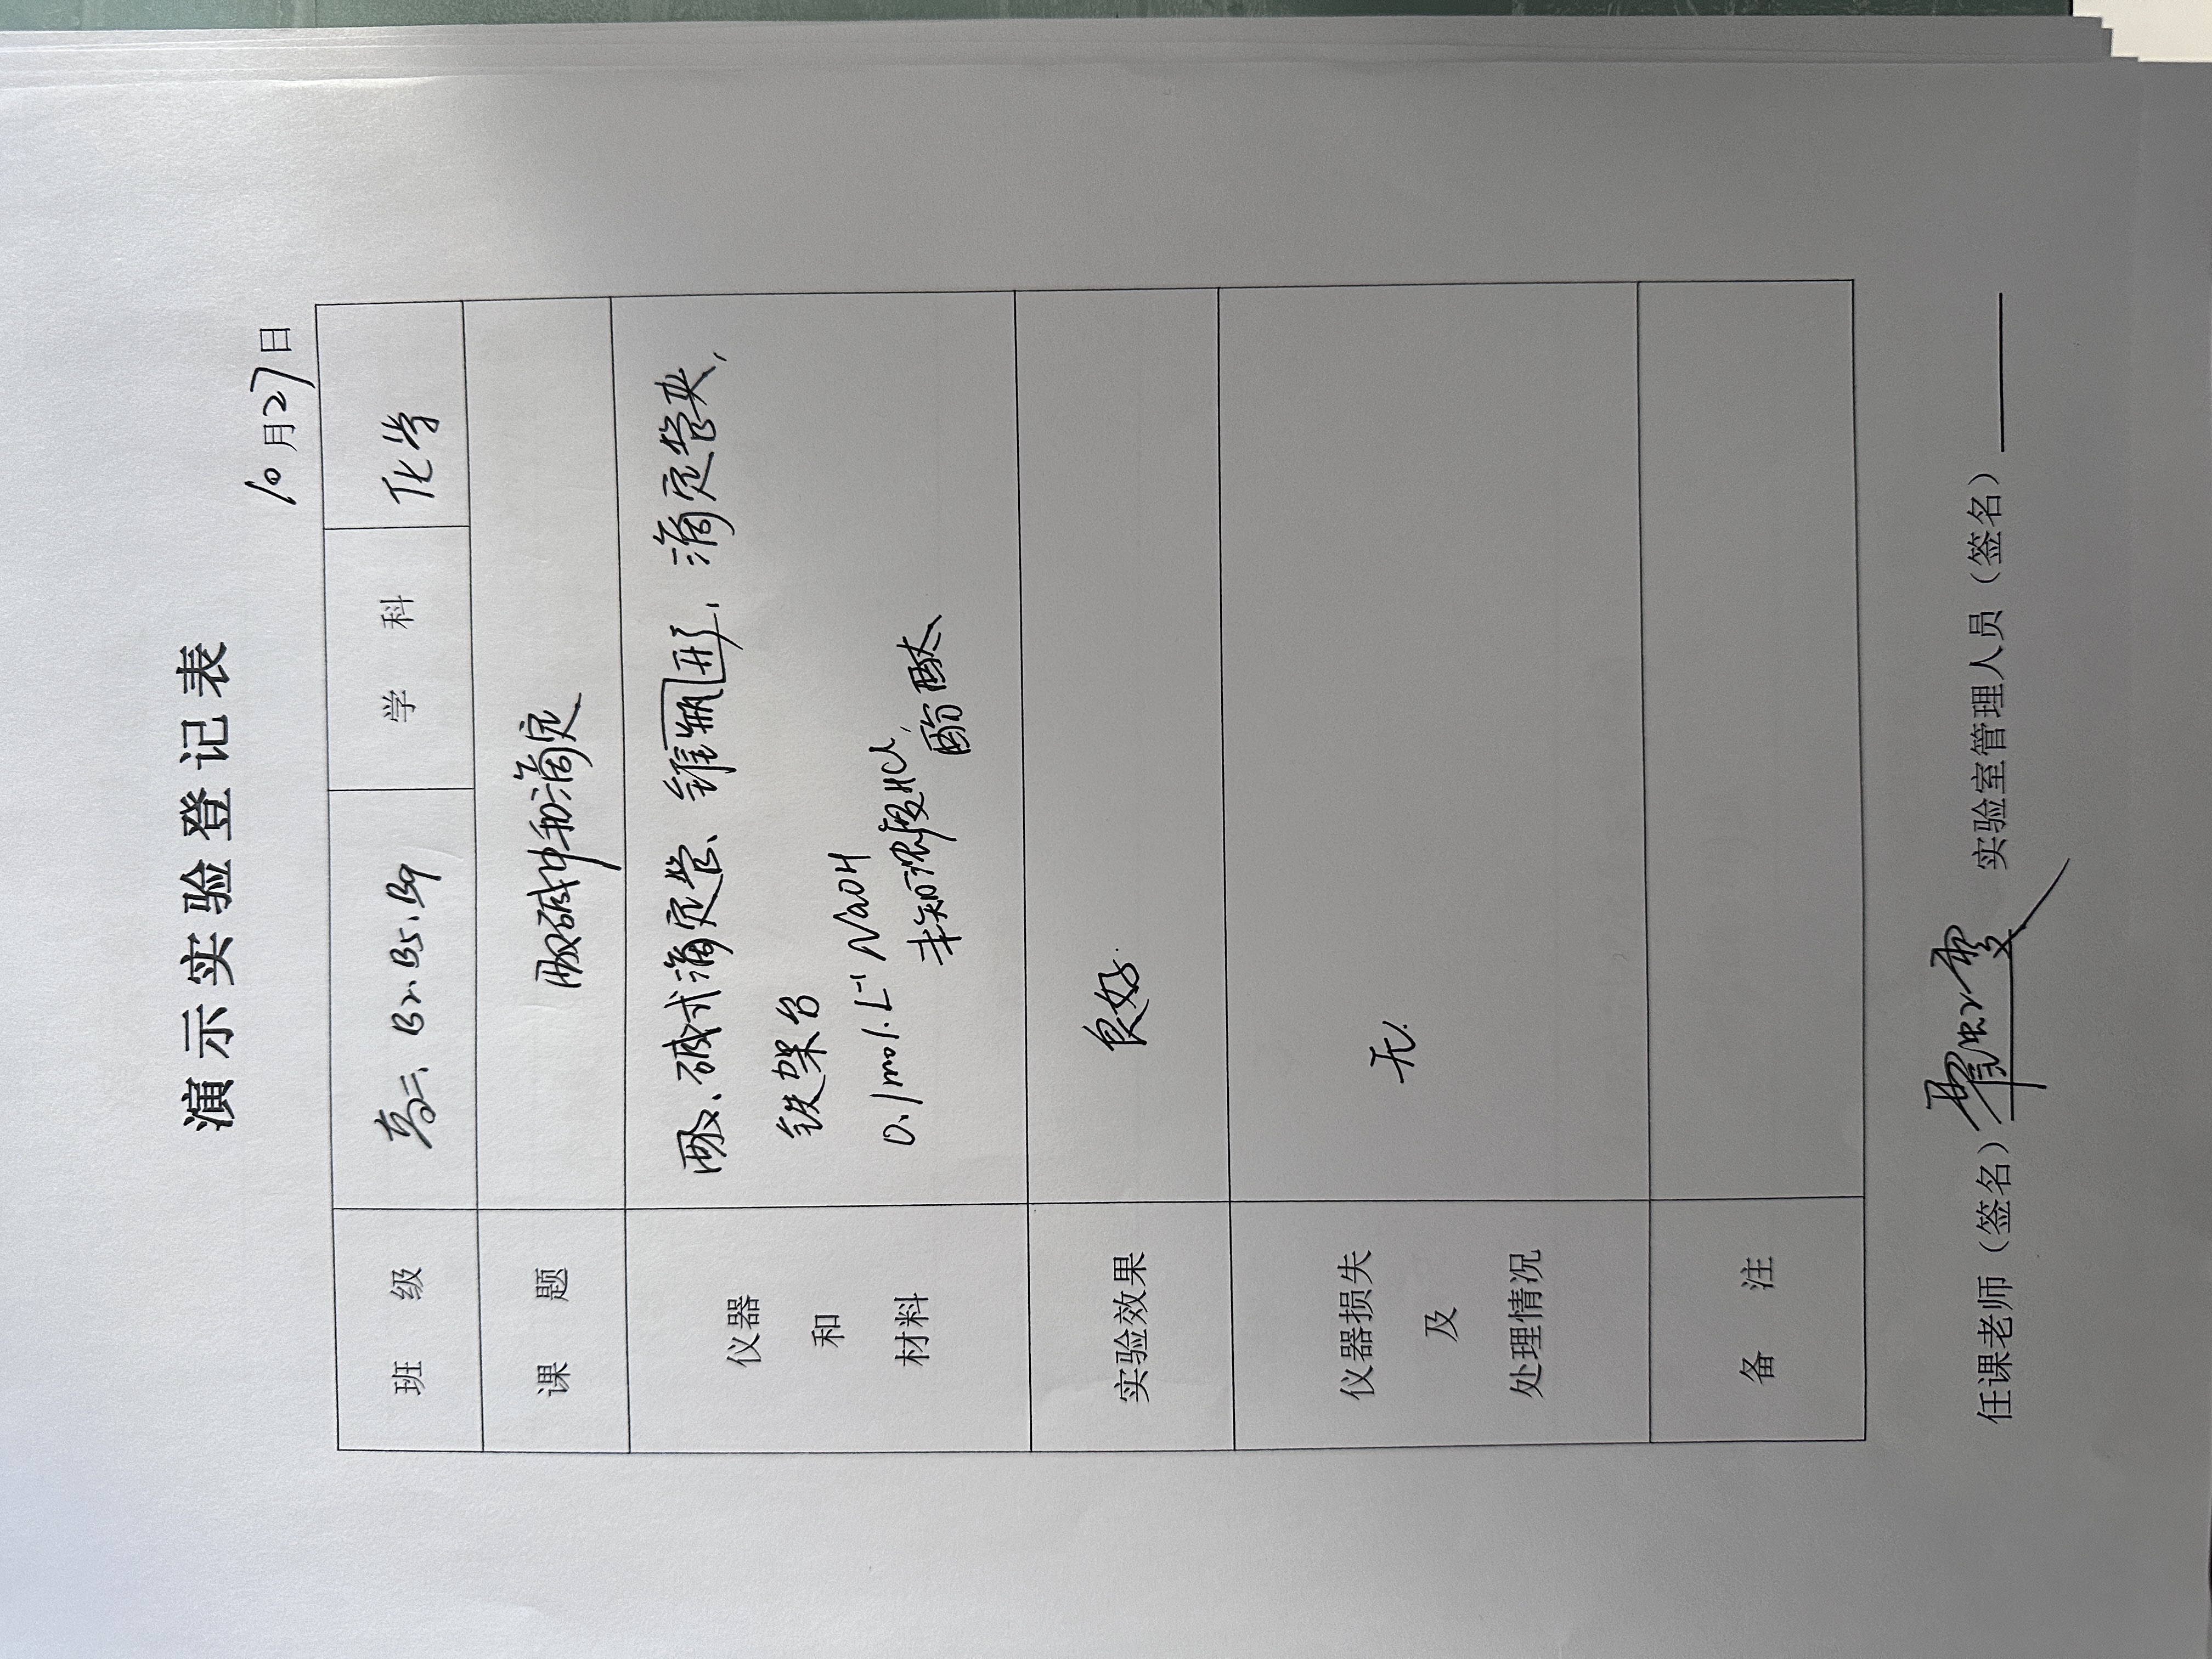 演示实验登记表
10月27日
班 级 高二、B2、B5、B9 学 科 化学
课 题 酸碱中和滴定
仪器 和 材料 酸、碱式滴定管、锥瓶形、滴定管夹、
铁架台
0.1mol·L⁻¹ NaOH
未知浓度HCl、
酚酞
实验效果 良好.
仪器损失 及 处理情况 无.
备 注
任课老师（签名） 实验室管理人员（签名）